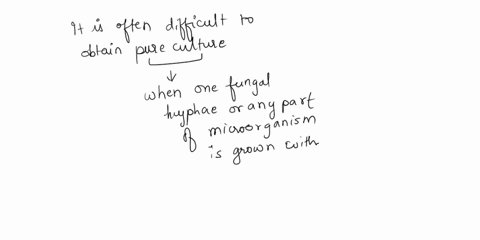 It is often difficult to
obtain pure culture
when one fungal
hyphae or any part
of microorganism
is grown with